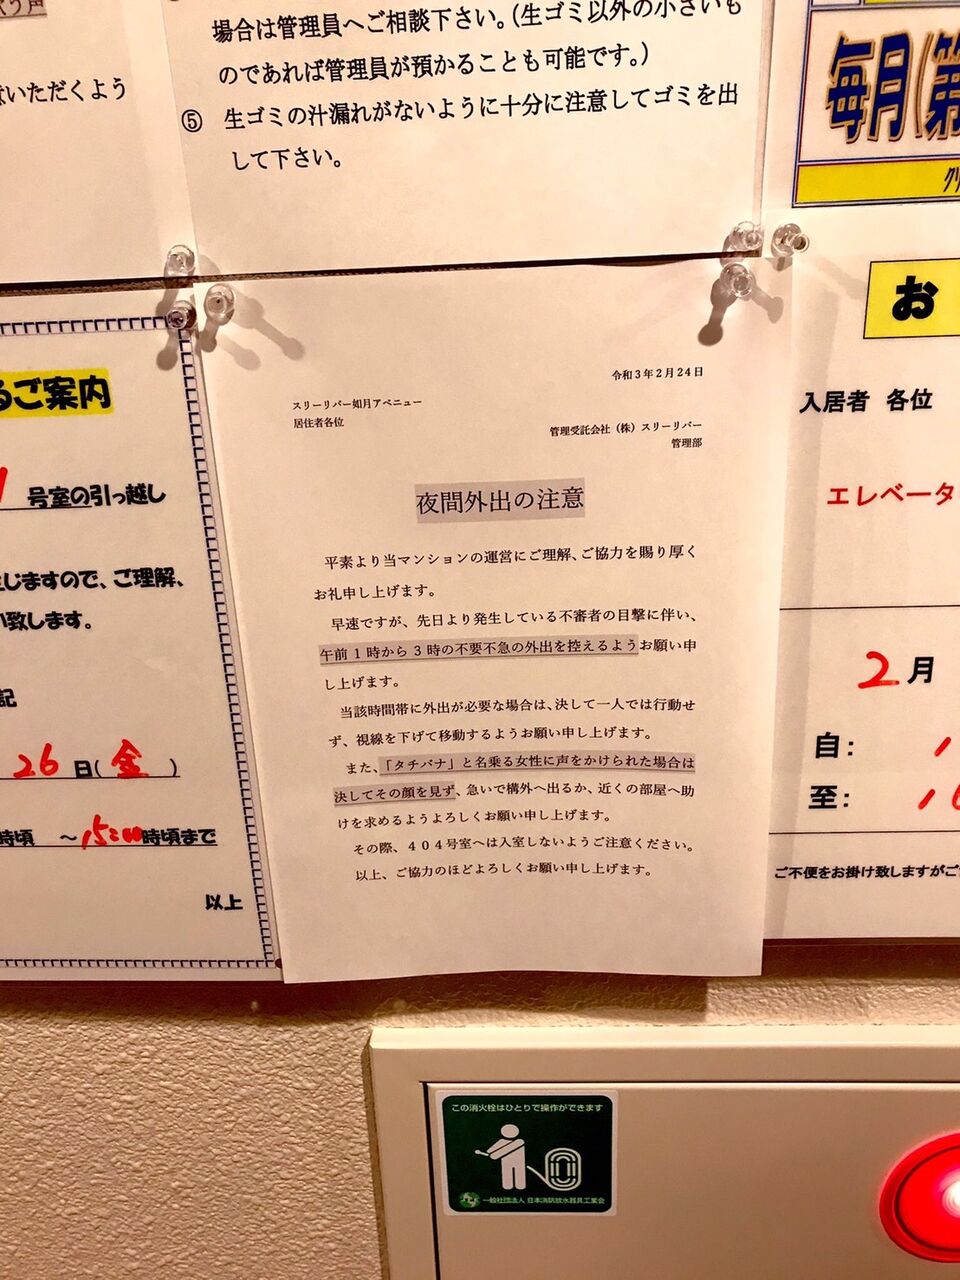 う声
いただくよう
場合は管理員へご相談下さい。（生ゴミ以外の小さいも
のであれば管理員が預かることも可能です。）
⑤ 生ゴミの汁漏れがないように十分に注意してゴミを出
して下さい。
毎月(第
令和3年2月24日
スリーリバー如月アベニュー
居住者各位
管理受託会社（株）スリーリバー
管理部
夜間外出の注意
平素より当マンションの運営にご理解、ご協力を賜り厚く
お礼申し上げます。
早速ですが、先日より発生している不審者の目撃に伴い、
午前1時から3時の不要不急の外出を控えるようお願い申
し上げます。
当該時間帯に外出が必要な場合は、決して一人では行動せ
ず、視線を下げて移動するようお願い申し上げます。
また、「タチバナ」と名乗る女性に声をかけられた場合は
決してその顔を見ず、急いで構外へ出るか、近くの部屋へ助
けを求めるようよろしくお願い申し上げます。
その際、404号室へは入室しないようご注意ください。
以上、ご協力のほどよろしくお願い申し上げます。
るご案内
号室の引っ越し
じますので、ご理解、
致します。
記
26日(金)
時頃 ～15:00時頃まで
以上
お
入居者 各位
エレベータ
2月
自:
至:
ご不便をお掛け致しますがご
この消火栓はひとりで操作ができます
一般社団法人 日本消防放水器具工業会